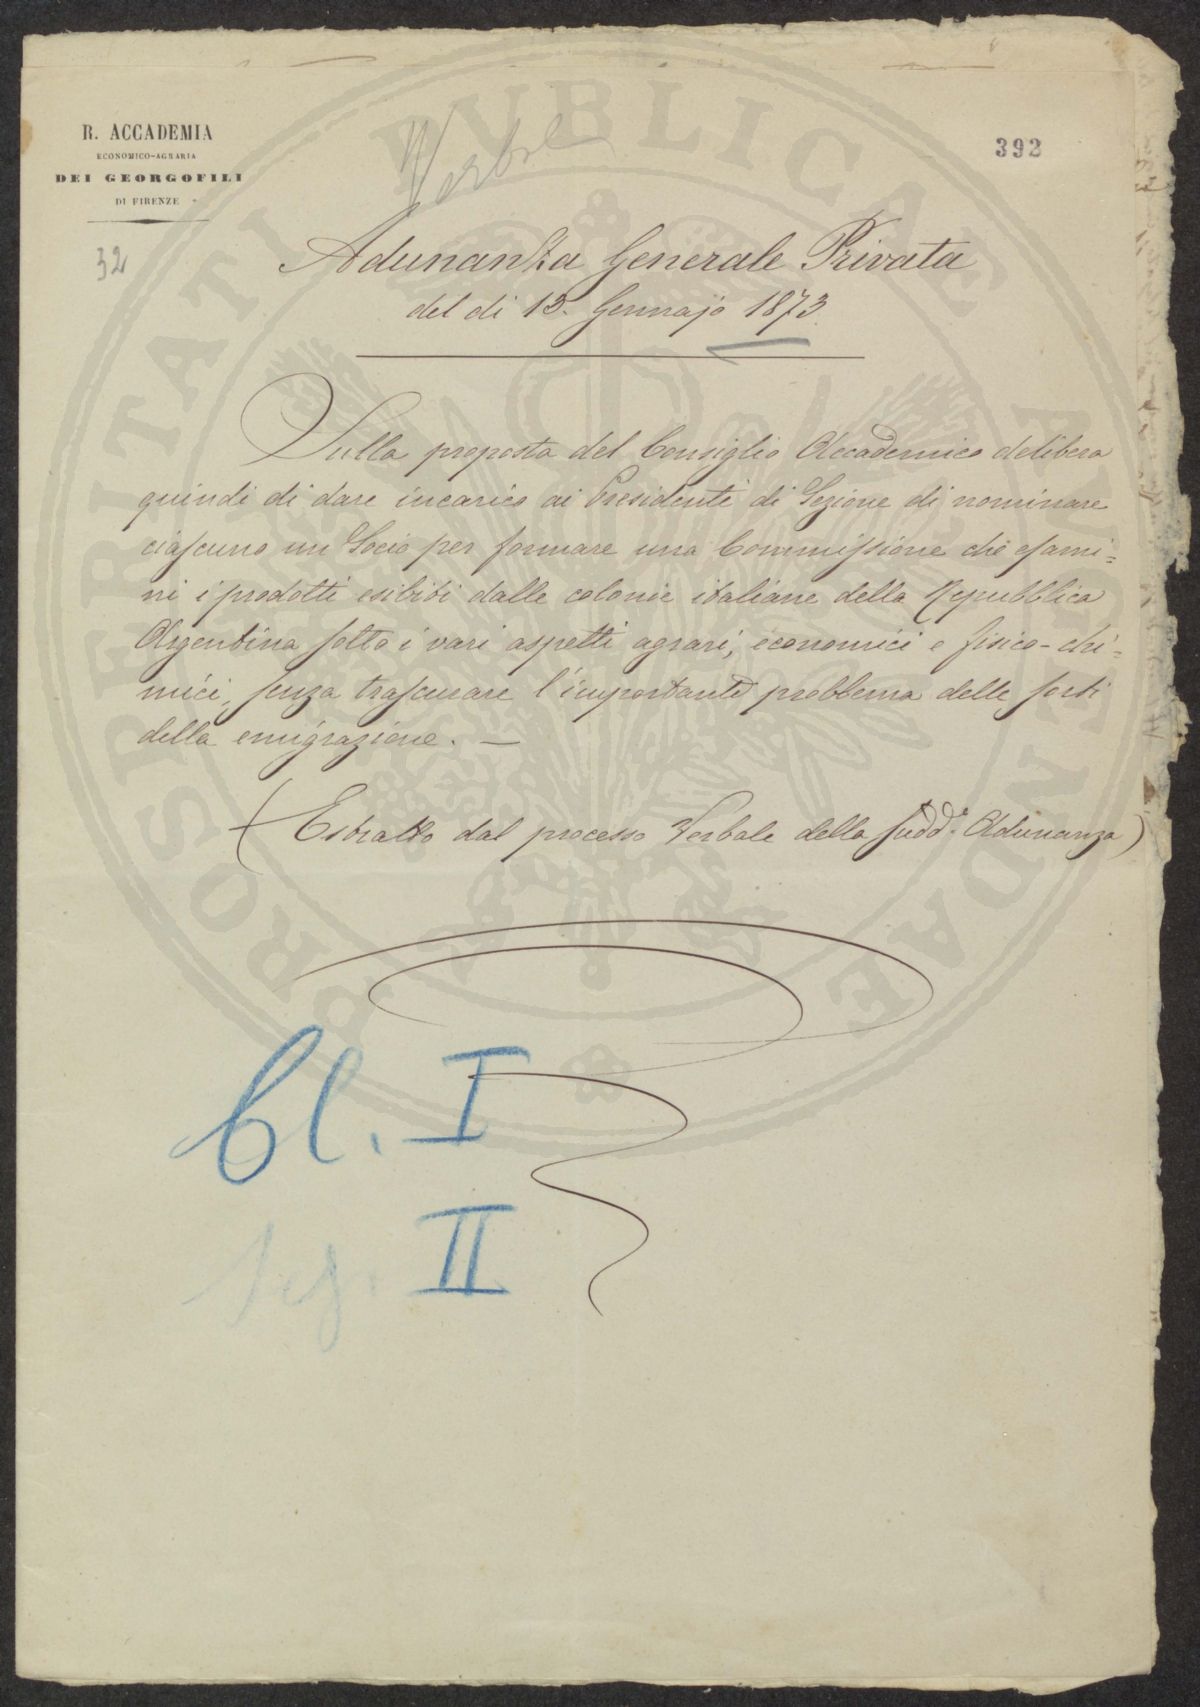 R. ACCADEMIA
ECONOMICO-AGRARIA
DEI GEORGOFILI
DI FIRENZE
392
32
Adunanza Generale Privata
del di 12. Gennajo 1873
Sulla proposta del Consiglio Accademico delibera
quindi di dare incarico ai Presidenti di Sezione di nominare
ciascuno un Socio per formare una Commissione che esami=
ni i prodotti esibiti dalle colonie italiane della Repubblica
Argentina sotto i vari aspetti agrari, economici e fisico-chi=
mici, senza trascurare l'importante problema delle sorti
della emigrazione. —
(Estratto dal processo Verbale della sudd.a Adunanza)
Cl. I
II
PROSPERITATI PUBLICAE AUGENDAE